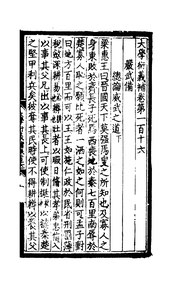 大學衍義補卷第一百十六
嚴武備
總論威武之道下
梁惠王曰晉國天下莫强焉叟之所知也及寡人之
身東敗於齊長子死焉西喪地於秦七百里南辱於
楚寡人恥之願比死者一洒之如之何則可孟子對
曰地方百里而可以王王如施仁政於民省刑罰薄
稅斂深耕易耨壯者以暇日脩其孝弟忠信入以事其
父兄出以事其長上可使制梃以撻秦楚
之堅甲利兵矣彼奪其民時使不得耕耨以養其父